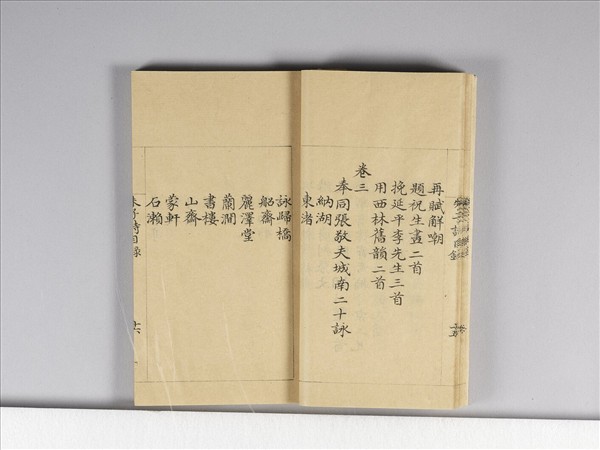 再賦解嘲
題祝生畫二首
挽延平李先生三首
用西林舊韻二首
卷三
奉同張敬夫城南二十詠
納湖
東渚
詠歸橋
船齋
麗澤堂
蘭澗
書樓
山齋
蒙軒
石瀨
朱子詩目錄
十六